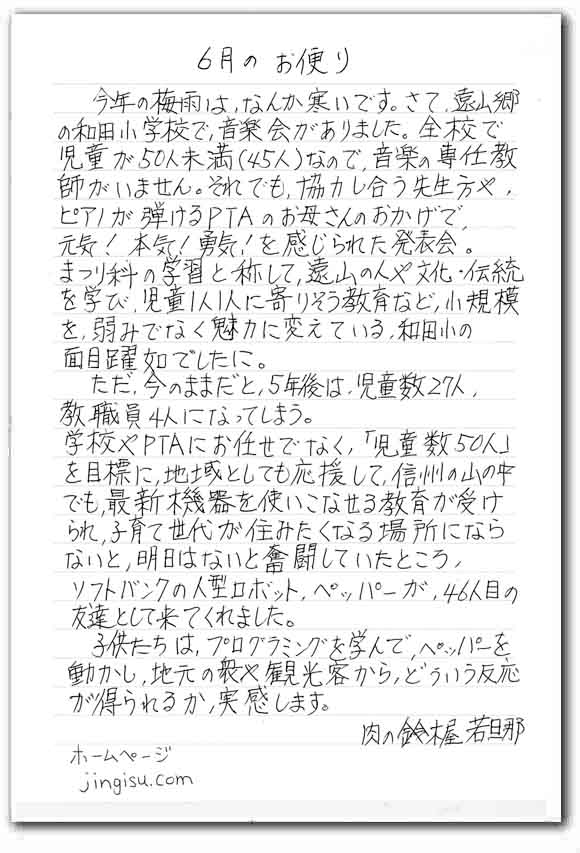 6月の お便り
今年の梅雨は,なんか寒いです。さて,遠山郷
の和田小学校で,音楽会がありました。全校で
児童が50人未満(45人)なので,音楽の専任教
師がいません。それでも,協力し合う先生方や,
ピアノが弾けるPTAのお母さんのおかげで,
元気!本気!勇気!を感じられた発表会。
まつり科の学習と称して,遠山の人や文化・伝統
を学び,児童1人1人に寄りそう教育など,小規模
を,弱みでなく魅力に変えている,和田小の
面目躍如でしたに。
ただ,今のままだと,5年後は,児童数27人,
教職員4人になってしまう。
学校やPTAにお任せでなく,「児童数50人」
を目標に,地域としても応援して,信州の山の中
でも,最新機器を使いこなせる教育が受け
られ,子育て世代が住みたくなる場所になら
ないと,明日はないと奮闘していたところ,
ソフトバンクの人型ロボット,ペッパーが,46人目の
友達として来てくれました。
子供たちは,プログラミングを学んで,ペッパーを
動かし,地元の衆や観光客から,どういう反応
が得られるか,実感します。
肉の鈴木屋 若旦那
ホームページ
jingisu.com